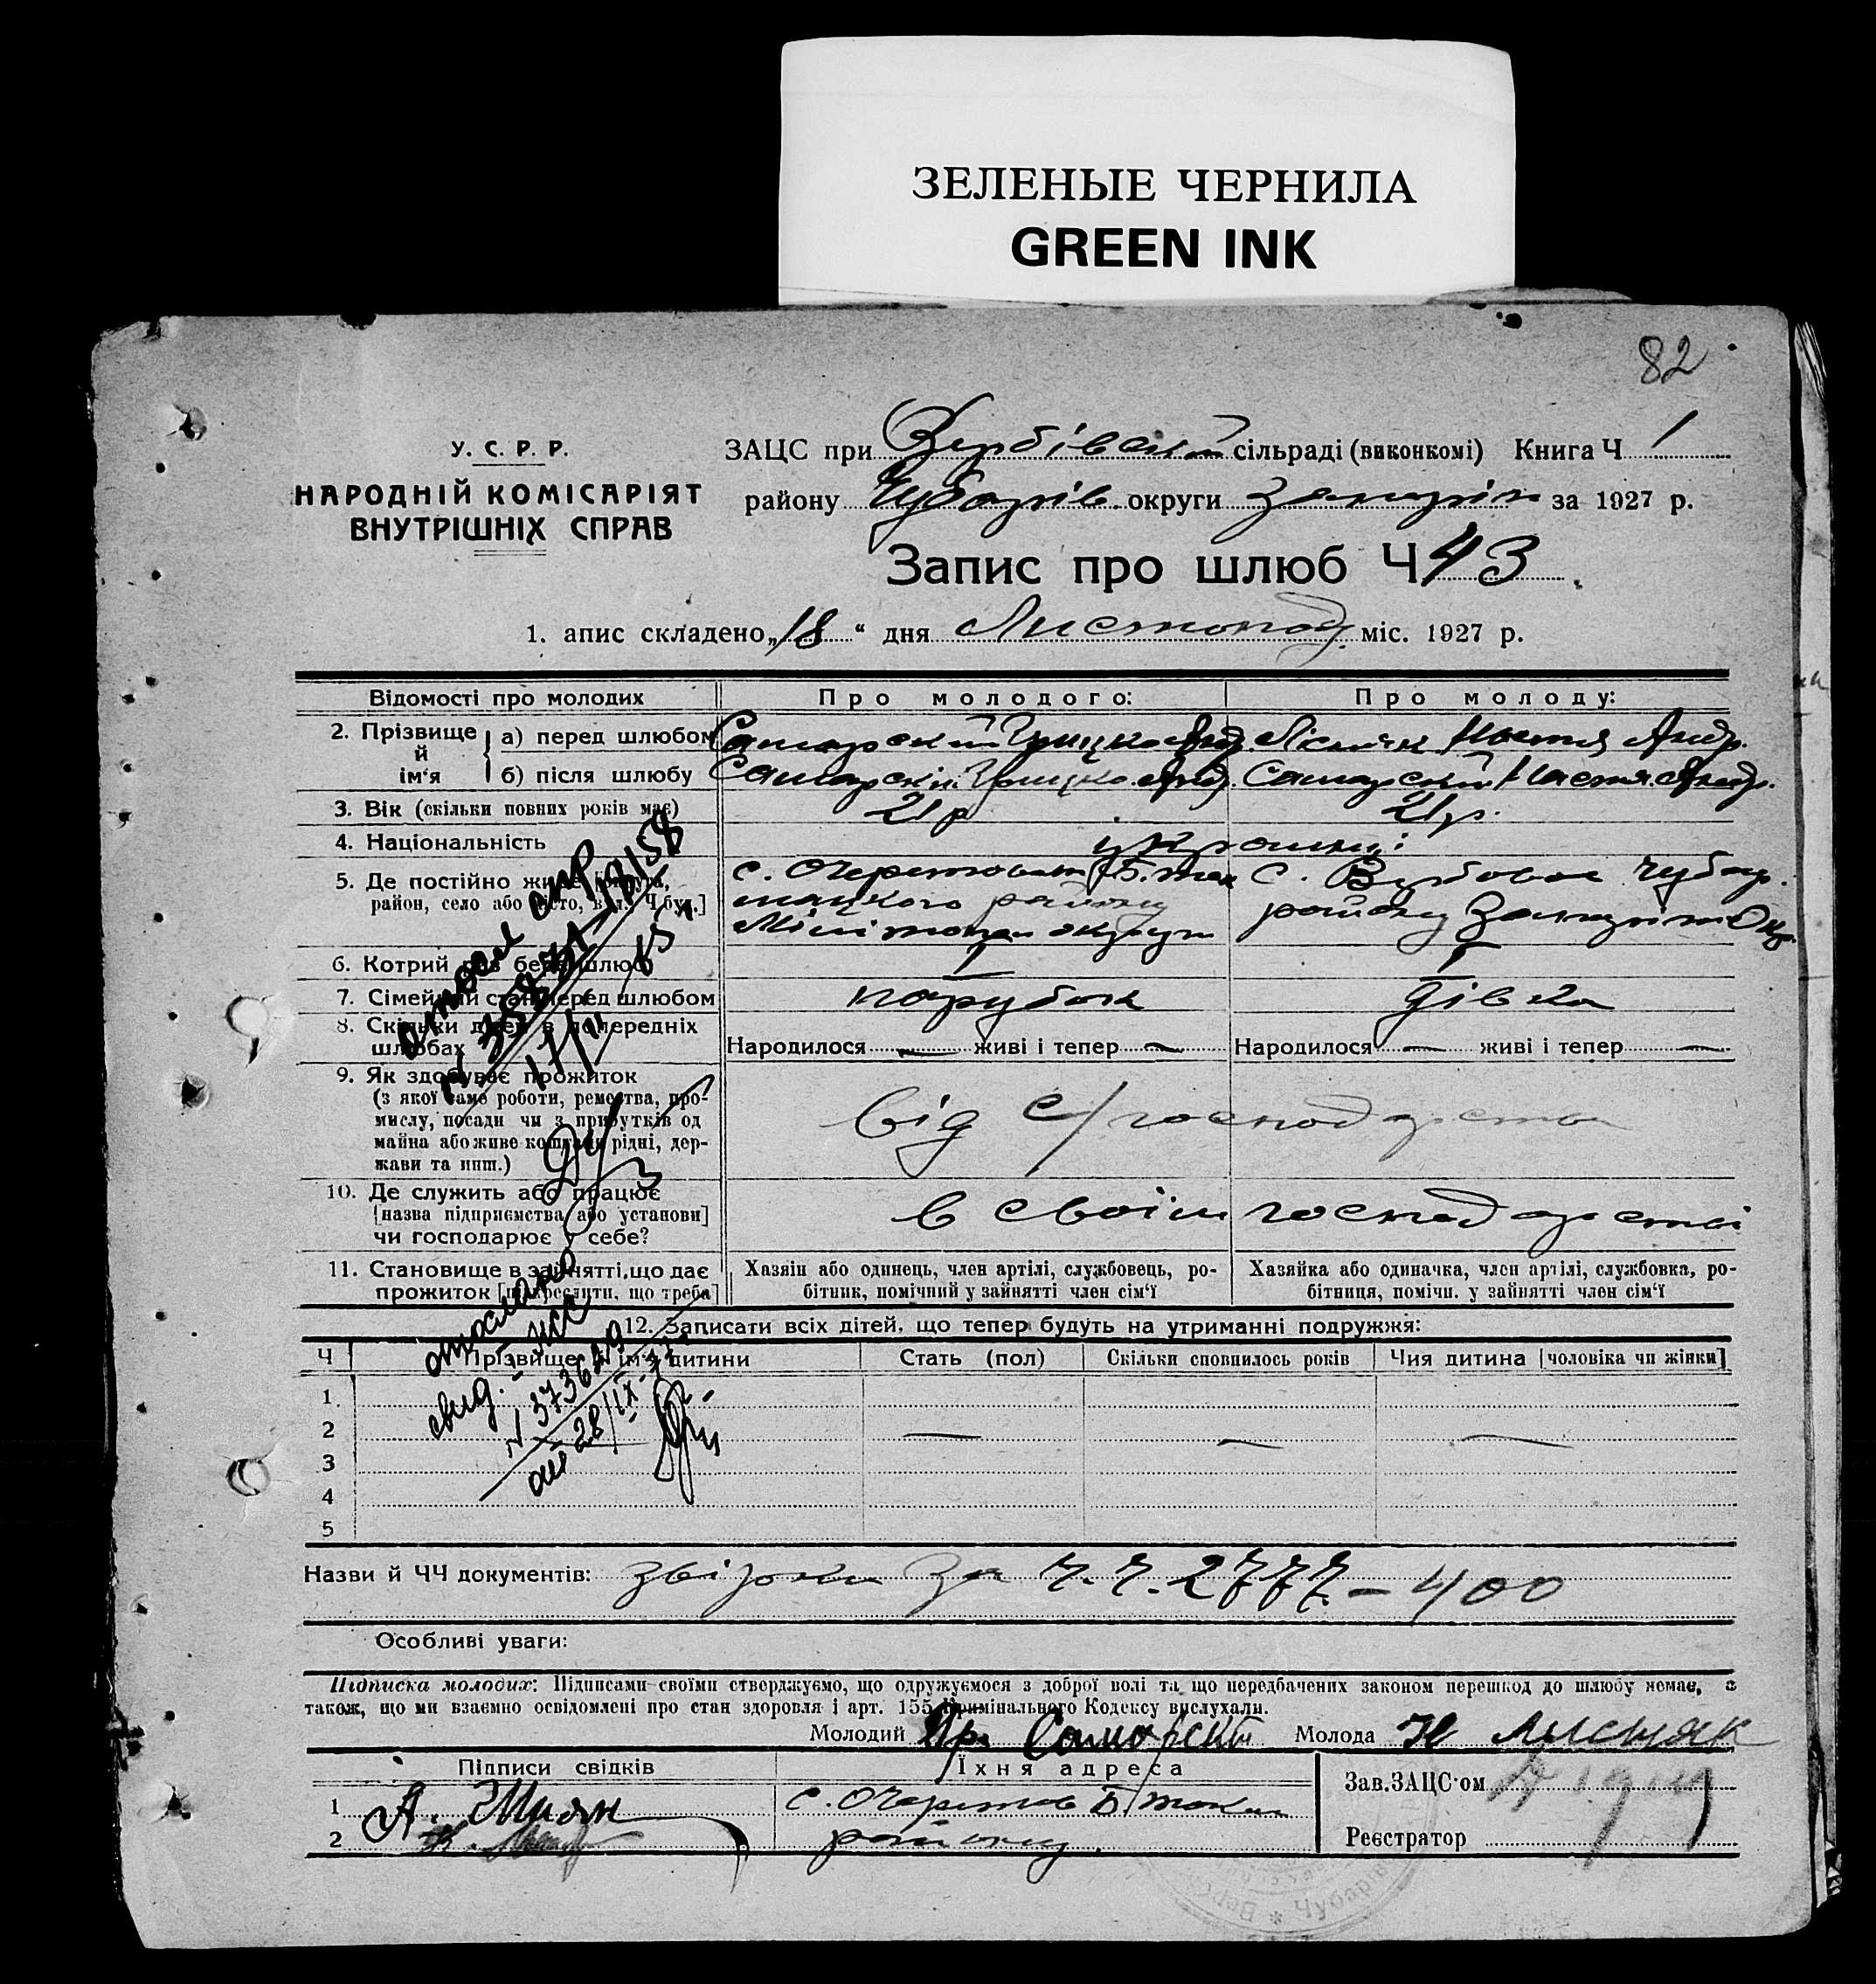 ЗЕЛЕНЫЕ ЧЕРНИЛА
GREEN INK
82
У. С. Р. Р.
НАРОДНІЙ КОМІСАРІЯТ
ВНУТРІШНІХ СПРАВ
ЗАЦС при Вербівській сільраді (виконкомі) Книга Ч 1
району Чубарів. округи Запоріж за 1927 р.
Запис про шлюб Ч 43.
1. апис складено „18“ дня Листопад. міс. 1927 р.
Відомості про молодих Про молодого: Про молоду:
2. Прізвище й ім‘я
а) перед шлюбом Самарский Грицко Анд. Лісняк Настя Андр.
б) після шлюбу Самарскій Грицко Анд. Самарский Настя Андр.
3. Вік (скільки повних років має) 21 р 21 р.
4. Національність українці
5. Де постійно живе [округа, район, село або місто, вул. Ч буд.]
с. Очеретоват Б. Ток
мацкого району
Мілітопол округи
с. Вербовое Чубар.
району Запоріж Окр.
6. Котрий раз бере шлюб 1 1
7. Сімейний стан перед шлюбом парубок дівка
8. Скільки дітей в попередніх шлюбах
Народилося — живі і тепер — Народилося — живі і тепер —
9. Як здобуває прожиток
(з якої саме роботи, ремества, про-
мислу, посади чи з прибутків од
майна або живе коштами рідні, дер-
жави та инш.)
від с/господарства
10. Де служить або працює
[назва підприємства або установи]
чи господарює у себе?
в своїм господарстві
11. Становище в зайнятті, що дає
прожиток [підкреслити, що треба]
Хазяїн або одинець, член артілі, службовець, ро-
бітник, помічний у зайнятті член сім‘ї
Хазяйка або одиначка, член артілі, службовка, ро-
бітниця, помічн. у зайнятті член сім‘ї
12. Записати всіх дітей, що тепер будуть на утриманні подружжя:
Ч Прізвище й ім‘я дитини Стать (пол) Скільки сповнилось років Чия дитина [чоловіка чи жінки]
1.
2 — — —
3
4
5
отосланo
свид.
N 373649
от 28/IX
Назви й ЧЧ документів: звірки за ч.ч. 2777 – 400
Особливі уваги:
Підписка молодих: Підписами своїми стверджуємо, що одружуємося з доброї волі та що передбачених законом перешкод до шлюбу немає, а
також, що ми взаємно освідомлені про стан здоровля і арт. 155 Кримінального Кодексу вислухали.
Молодий Гр. Самарский Молода Н Лисняк
Підписи свідків Їхня адреса
1 А. Шиян с. Очеретов Б/Токм
2 району.
Зав. ЗАЦС‘ом
Реєстратор